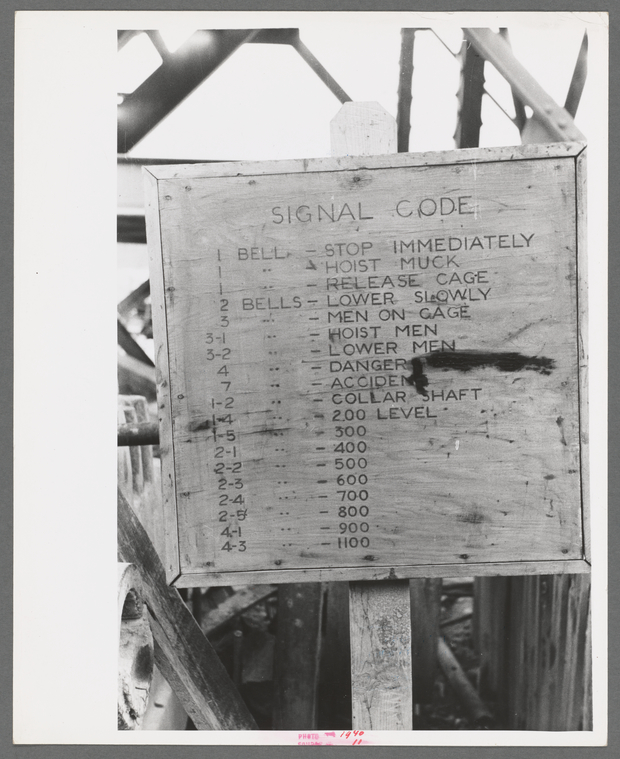 SIGNAL CODE
1 BELL - STOP IMMEDIATELY
1 " - HOIST MUCK
1 " - RELEASE CAGE
2 BELLS - LOWER SLOWLY
3 " - MEN ON CAGE
3-1 " - HOIST MEN
3-2 " - LOWER MEN
4 " - DANGER
7 " - ACCIDENT
1-2 " - COLLAR SHAFT
1-4 " - 200 LEVEL
1-5 " - 300
2-1 " - 400
2-2 " - 500
2-3 " - 600
2-4 " - 700
2-5 " - 800
4-1 " - 900
4-3 " - 1100
PHOTO 1940
11